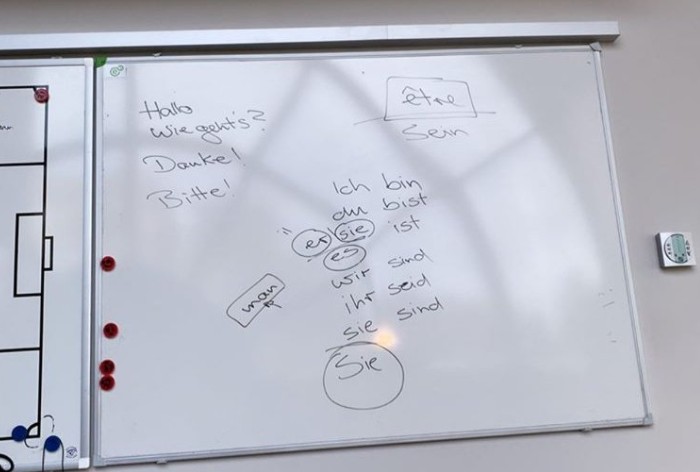 Hallo
Wie geht's?
Danke!
Bitte!
être
Sein
Ich bin
du bist
er sie ist
es
wir sind
ihr seid
sie sind
Sie
man